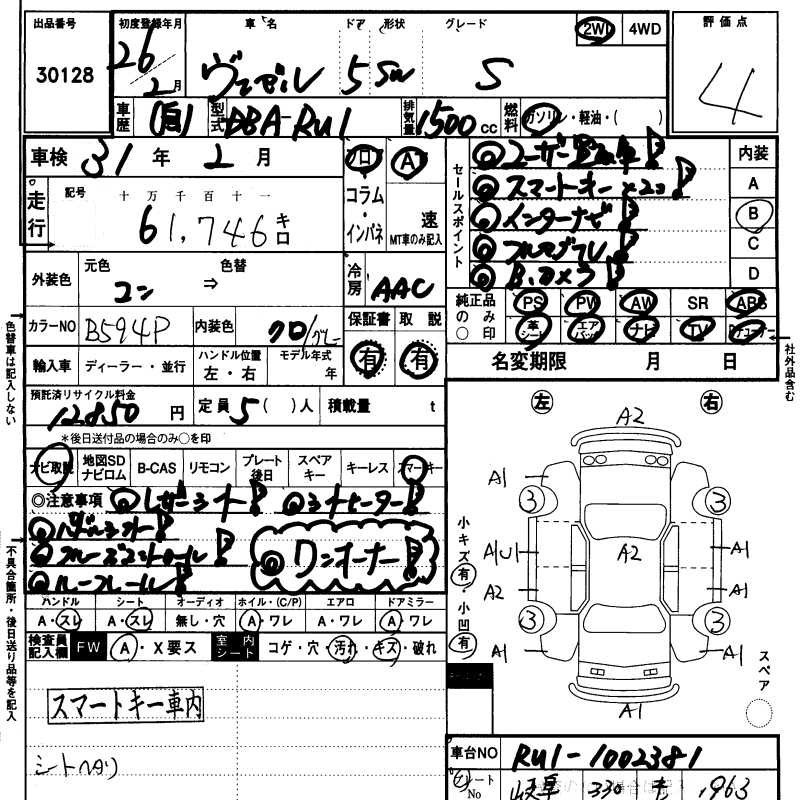 出品番号
30128
初度登録年月
26
2月
車名
ヴェゼル
ドア
5
形状
SW
グレード
S
2WD 4WD
評価点
4
車歴
自
型式
DBA-RU1
排気量
1500 cc
燃料
ガソリン・軽油・( )
車検 31年 2月
フロア
コラム
・
インパネ
A
速
MT車のみ記入
走行
記号 十 万 千 百 十 一
61,746 キロ
外装色
元色 ⇒ 色替
コン
冷房
AAC
カラーNO B594P
内装色 クロ/グレー
保証書 取説
有 有
輸入車 ディーラー・並行
ハンドル位置
左・右
モデル年式
年
預託済リサイクル料金
12850 円
定員 5 ( )人
積載量 t
*後日送付品の場合のみ○を印
ナビ取説
地図SD
ナビロム
B-CAS
リモコン
プレート
後日
スペア
キー
キーレス
スマートキー
セールスポイント
◎ユーザー買取車!
◎スマートキー×2コ!
◎インターナビ!
◎フルセグTV!
◎B.カメラ!
内装
A
B
C
D
純正品のみ○印
PS PW AW SR ABS
革シート エアバッグ ナビ TV
名変期限 月 日
◎注意事項 ◎レザーシート! ◎シートヒーター!
◎パドルシフト!
◎クルーズコントロール!
◎ルーフレール!
◎ワンオーナー!
ハンドル シート オーディオ ホイル・(C/P) エアロ ドアミラー
A・スレ A・スレ 無し・穴 A・ワレ A・ワレ A・ワレ
検査員記入欄
FW A・X要ス
室内シート
コゲ・穴・汚れ・キズ・破れ
スマートキー車内
シートヘタリ
色替車は記入しない
不具合箇所・後日送り品等を記入
社外品含む
左 右
A2
A1
3 3
小キズ有・小凹有
A1U1 A2 A1
A2 A1
3 3
A1 A1
A1
スペア
車台NO RU1-1002381
プレートNo
岐阜 330 963